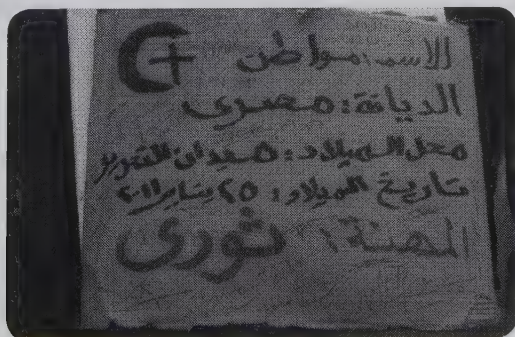 الاسم: مواطن
الديانة: مصرى
محل الميلاد: ميدان التحرير
تاريخ الميلاد: ٢٥ يناير ٢٠١١
المهنة: ثورى